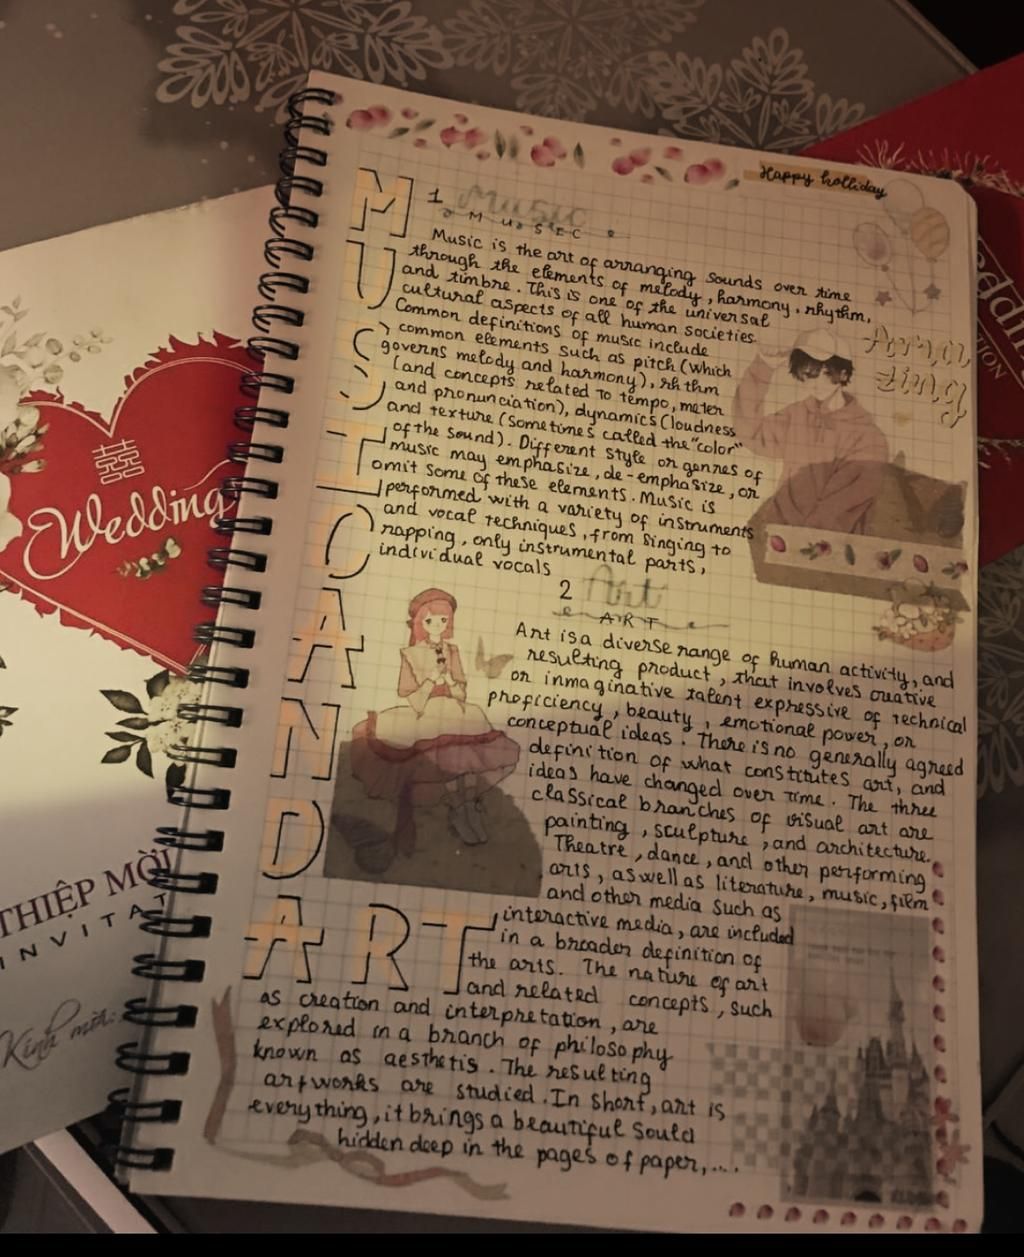 Happy holliday
MUSIC AND ART
1 Music
MUSIC
Music is the art of arranging sounds over time
through the elements of melody, harmony, rhythm,
and timbre. This is one of the universal
cultural aspects of all human societies.
Common definitions of music include
common elements such as pitch (which
governs melody and harmony), rhthm
(and concepts related to tempo, meter
and pronunciation), dynamics (loudness
and texture (sometimes called the "color"
of the sound). Different style or genres of
music may emphasize, de-emphasize, or
omit some of these elements. Music is
performed with a variety of instruments
and vocal techniques, from singing to
rapping, only instrumental parts,
individual vocals
Ama
zing
2 Art
ART
Art is a diverse range of human activity, and
resulting product, that involves creative
or inmaginative talent expressive of technical
proficiency, beauty, emotional power, or
conceptual ideas. There is no generally agreed
definition of what constitutes art, and
ideas have changed over time. The three
classical branches of visual art are
painting, sculpture, and architecture.
Theatre, dance, and other performing
arts, as well as literature, music, film
and other media such as
interactive media, are included
in a broader definition of
the arts. The nature of art
and related concepts, such
as creation and interpretation, are
explored in a branch of philosophy
known as aesthetis. The resulting
artworks are studied. In short, art is
everything, it brings a beautiful sould
hidden deep in the pages of paper,...
囍
Wedding
THIỆP MỜI
INVITAT
Kính mời: